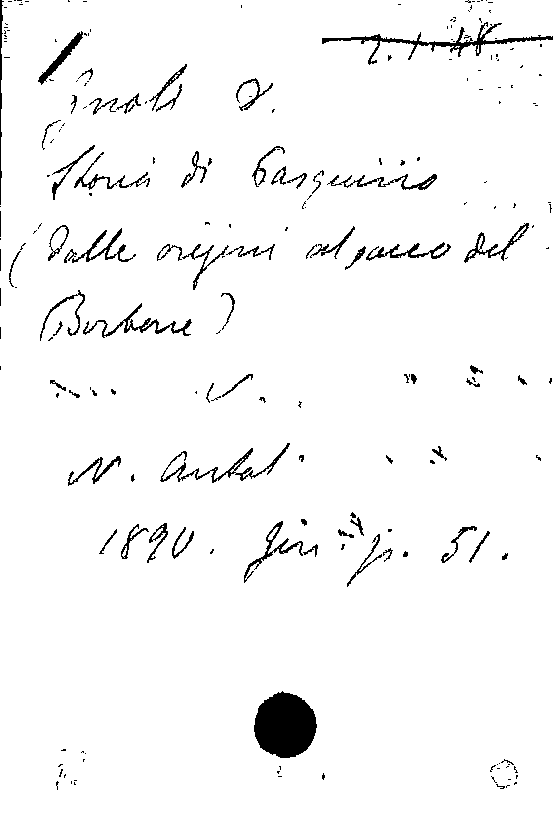 2.1.48
Gnoli D.
Storia di Pasquino
(Dalle origini al sacco del
Borbone)
N. Antol.
1890. Gen p. 51.